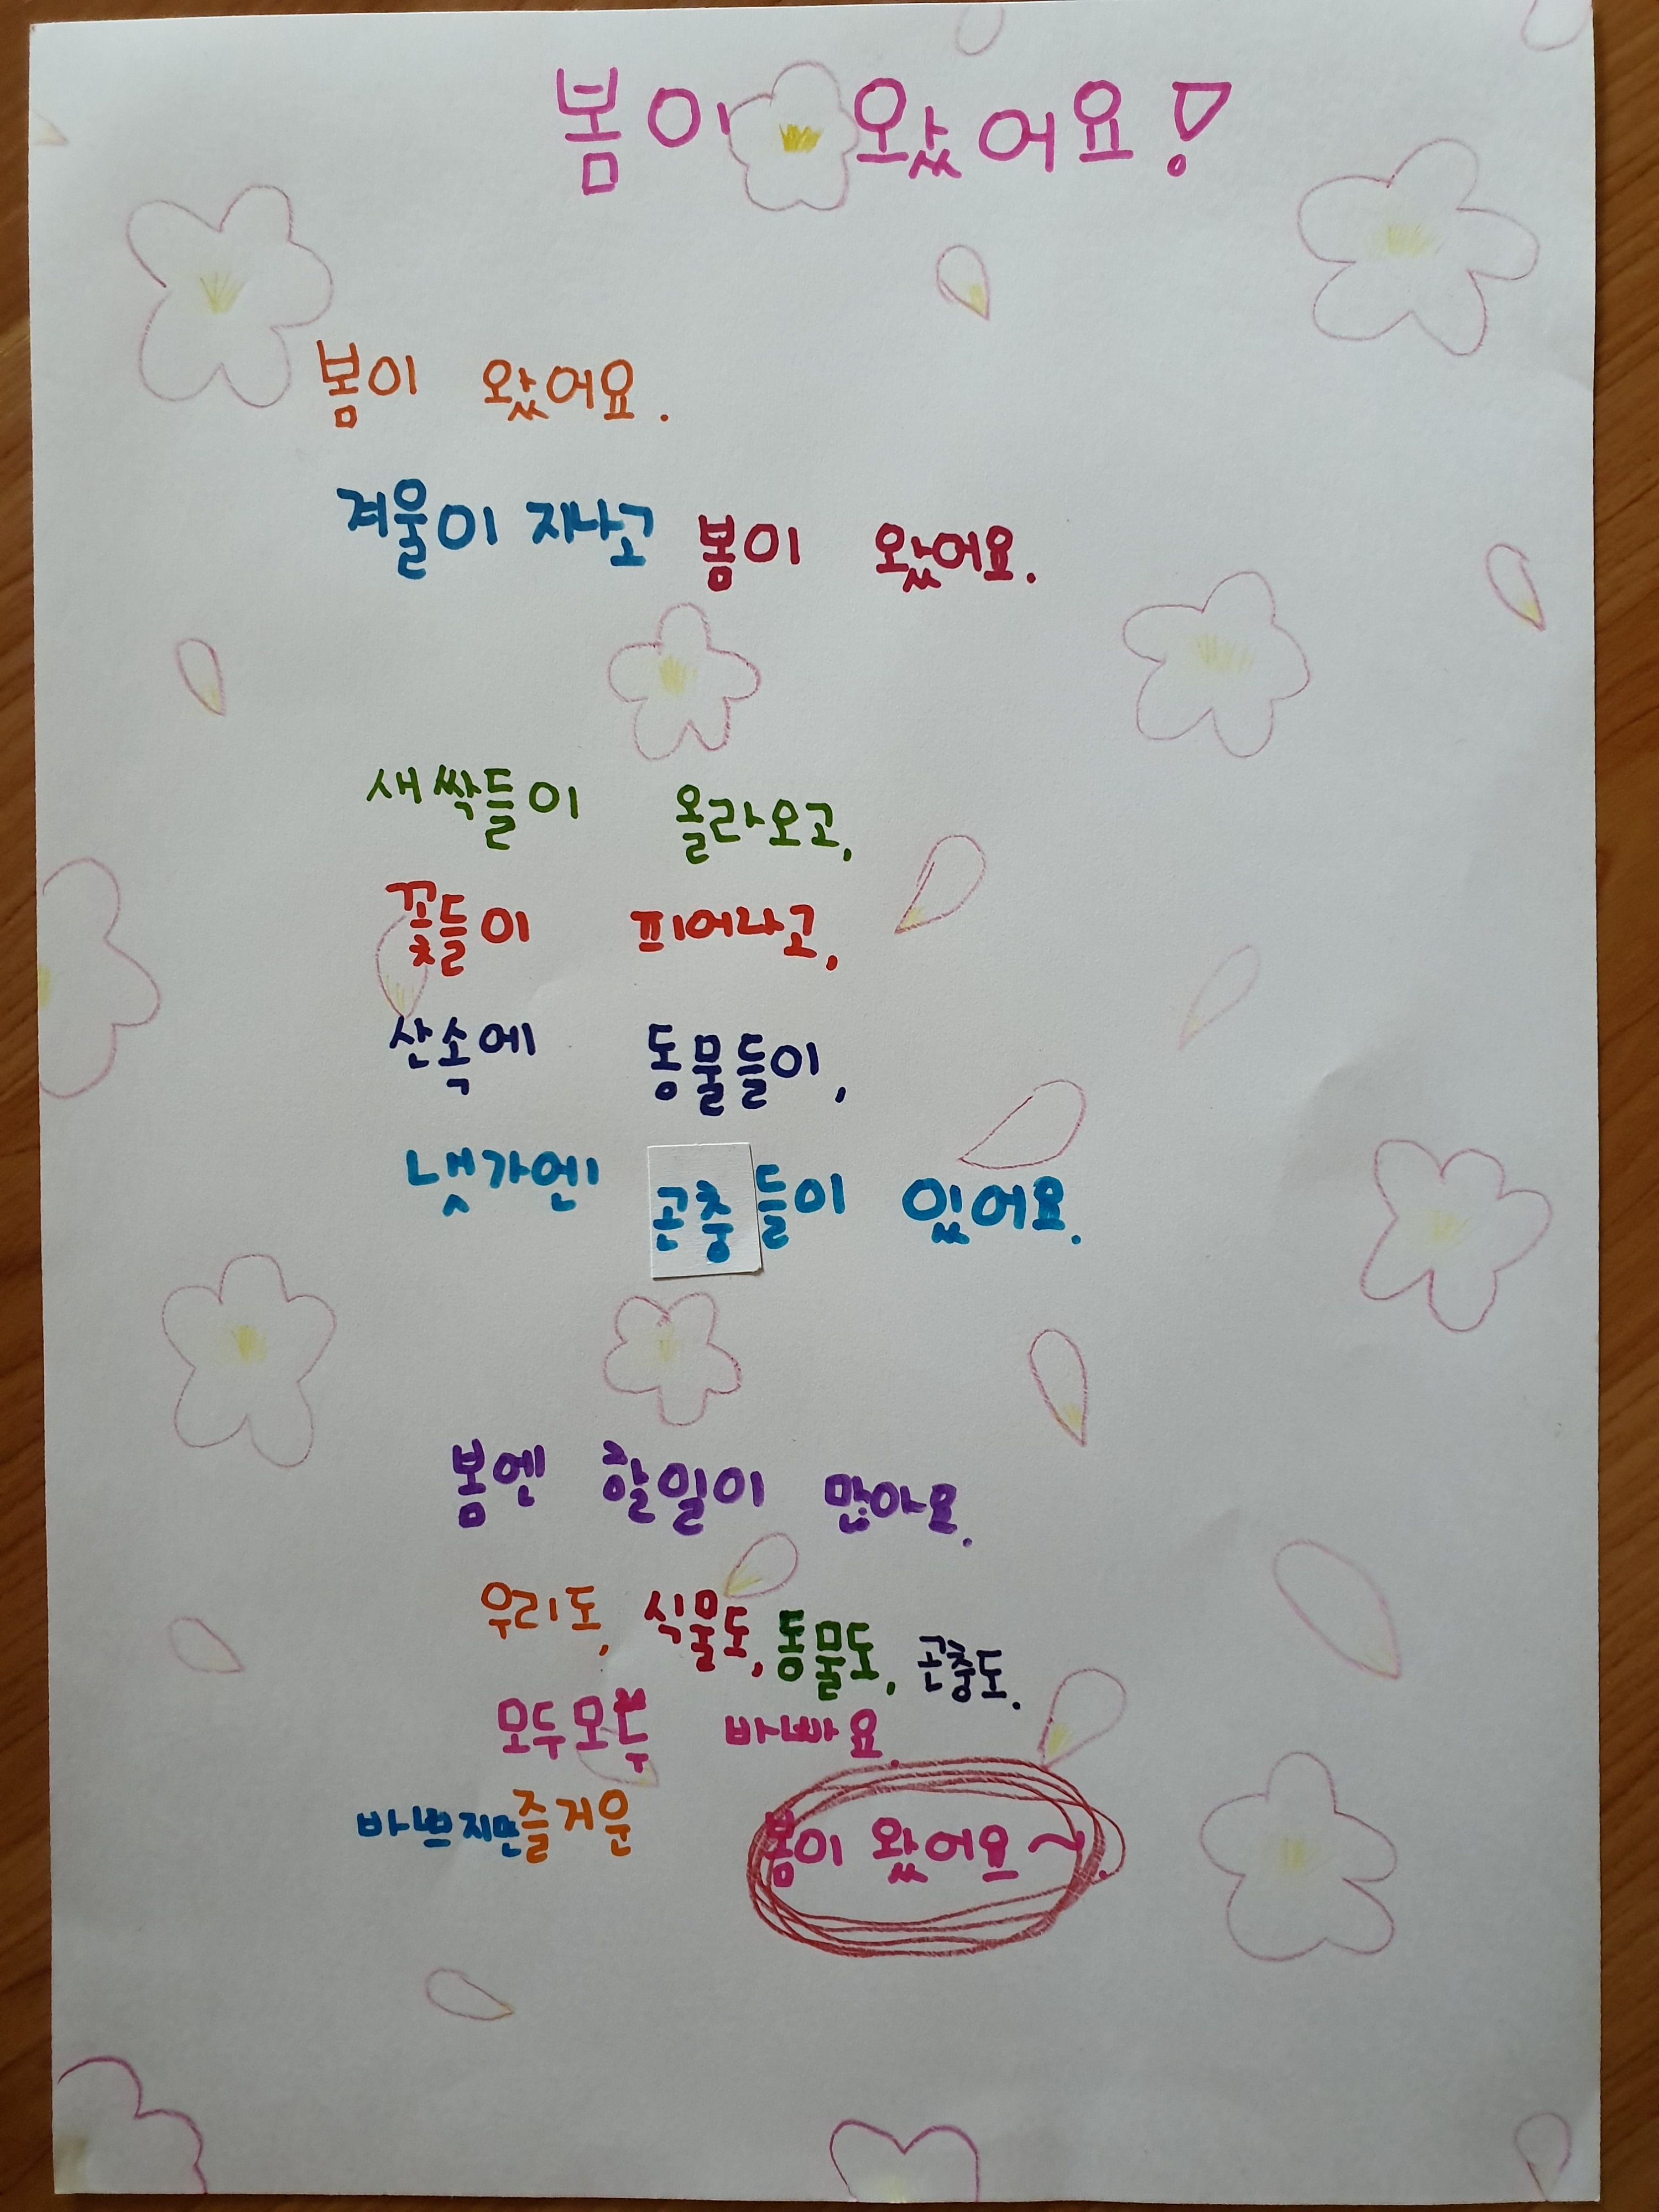 봄이 왔어요!
봄이 왔어요.
겨울이 지나고 봄이 왔어요.
새싹들이 올라오고,
꽃들이 피어나고,
산속에 동물들이,
냇가엔 곤충들이 있어요.
봄엔 할일이 많아요.
우리도, 식물도, 동물도, 곤충도.
모두모두 바빠요.
바쁘지만 즐거운 봄이 왔어요~.